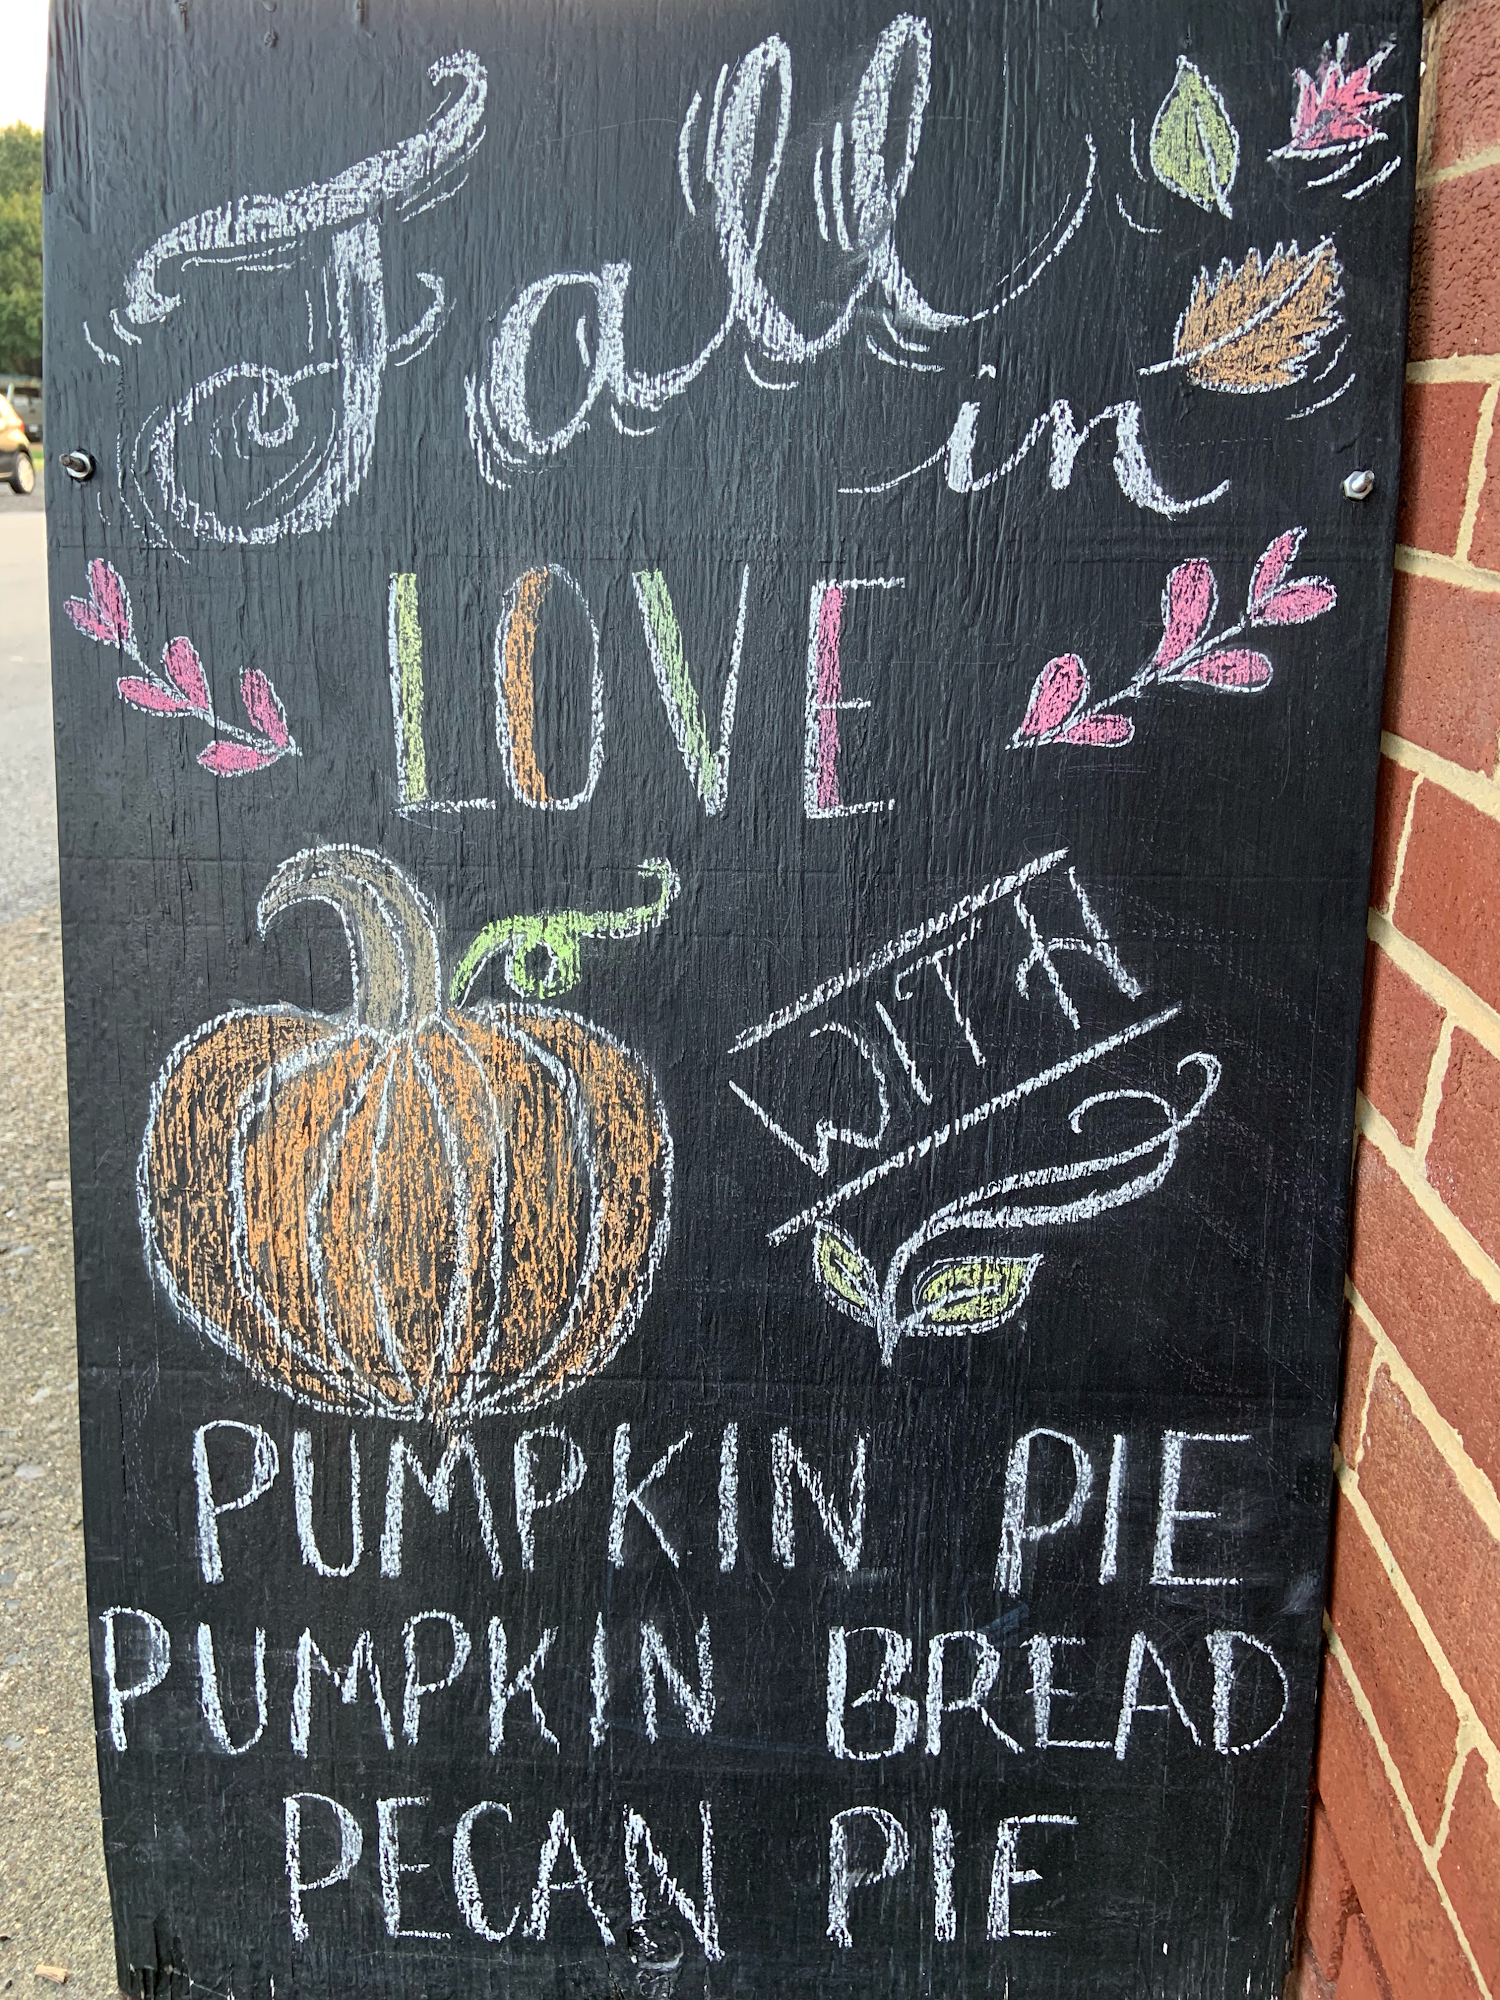 Fall
in
LOVE
WITH
PUMPKIN PIE
PUMPKIN BREAD
PECAN PIE